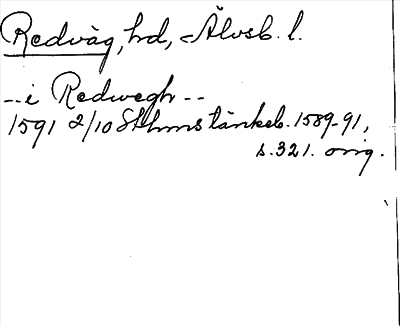 Redväg, hd, Älvsb. l.
-- i Redwegh --
1591 2/10 Sthms tänkeb. 1589-91,
s. 321. orig.